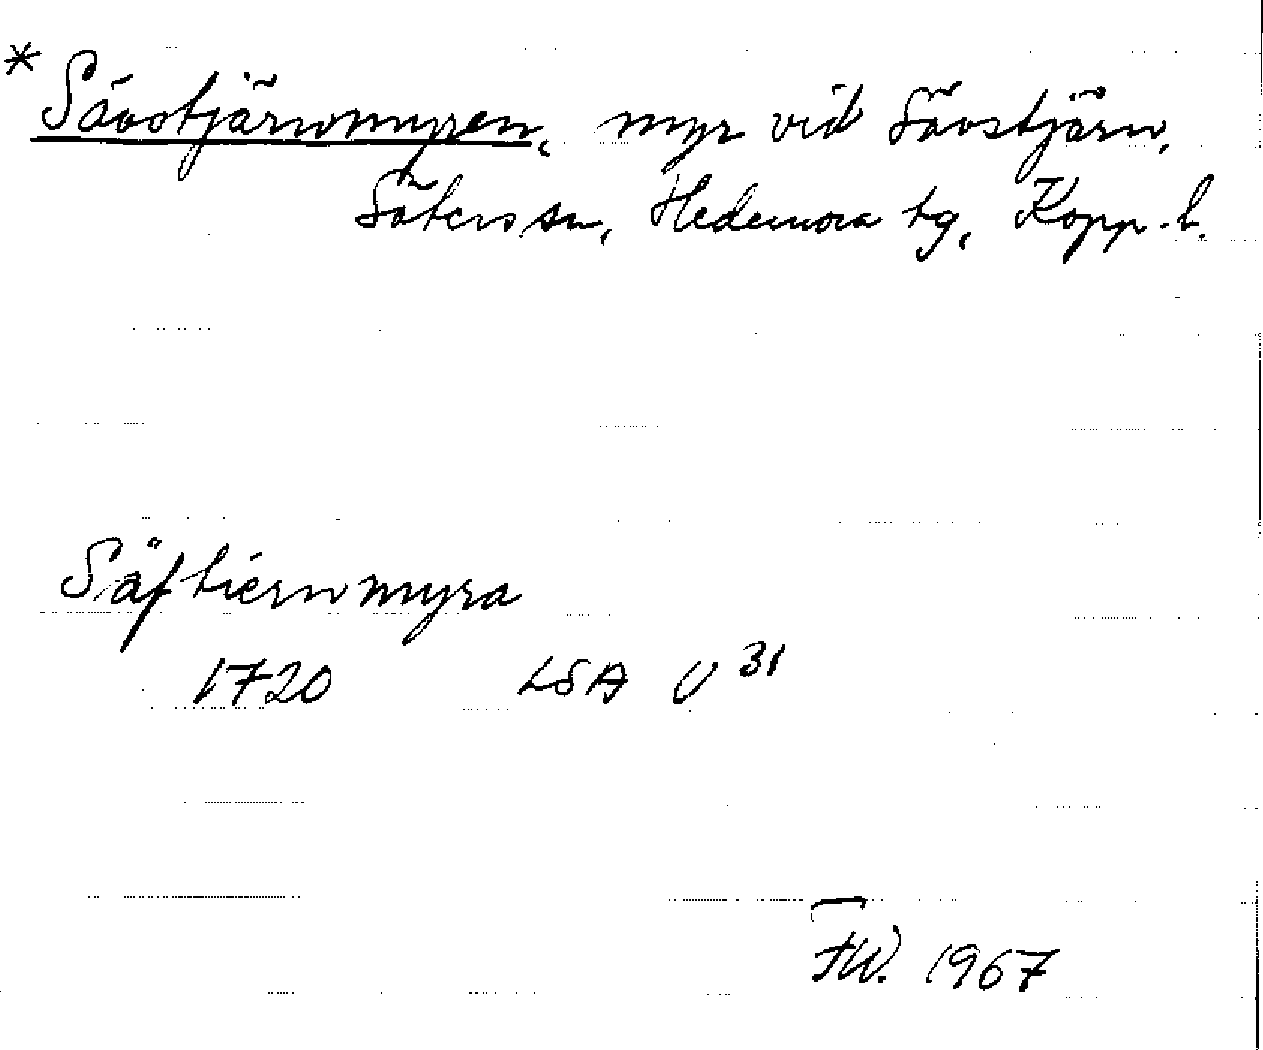 * Sävstjärnsmyren, myr vid Sävstjärn,
Säters sn, Hedemora tg, Kopp. l.
Säftiernmyra
1720 LSA U 31
FW. 1967